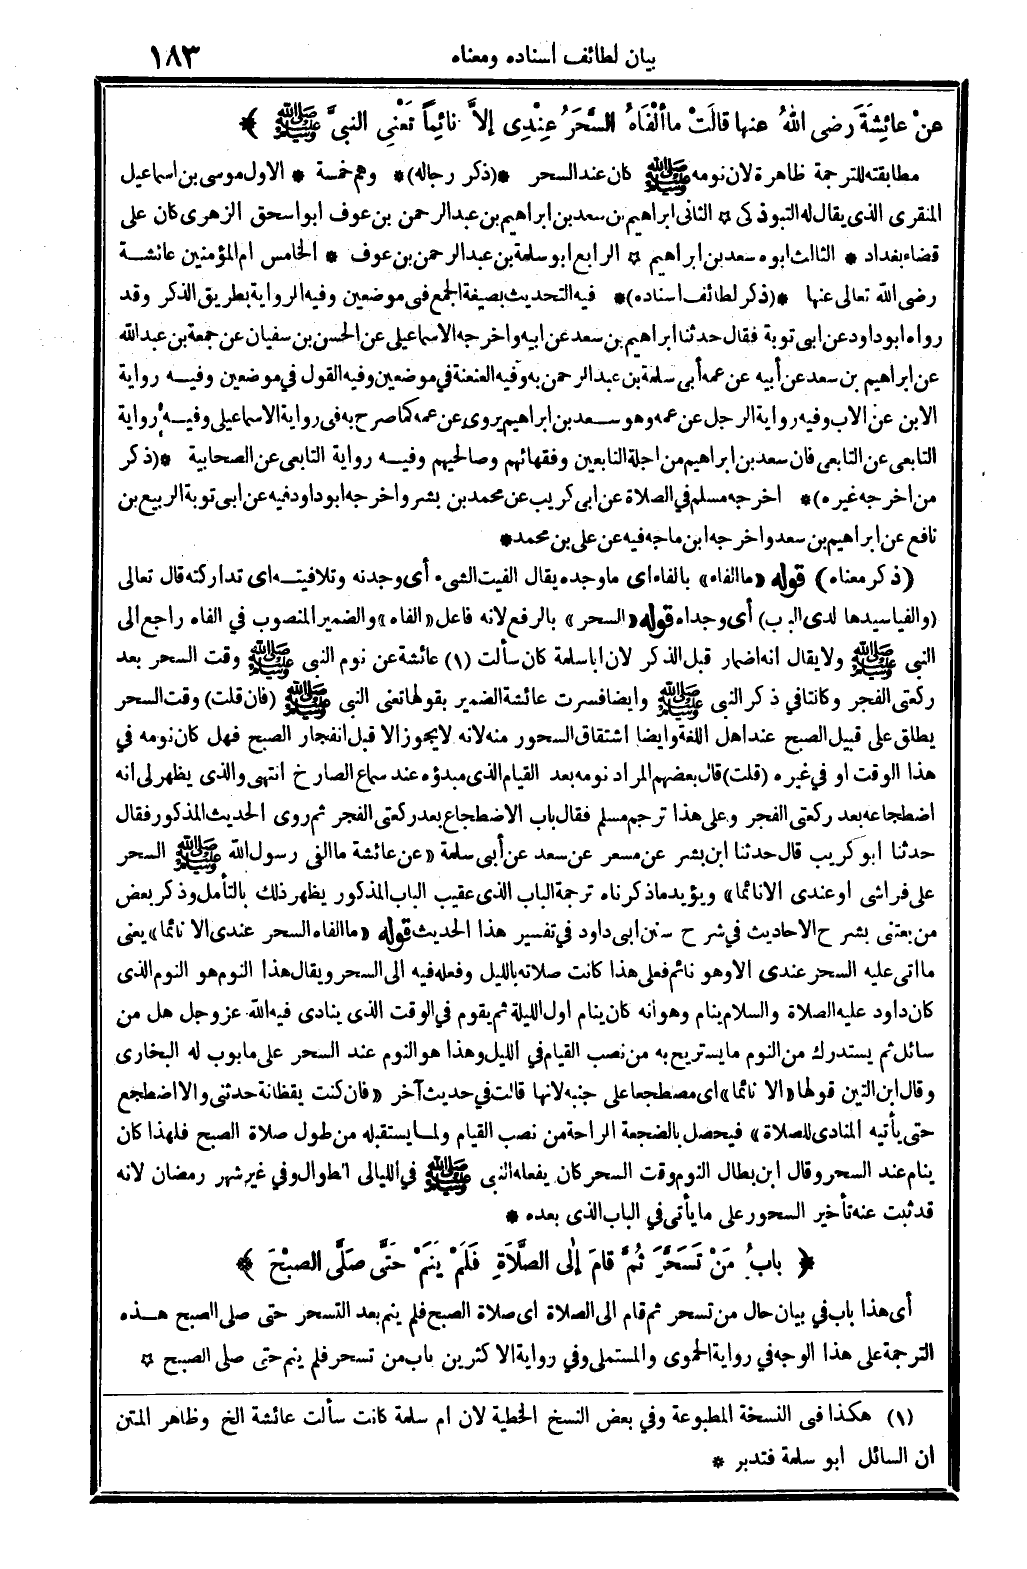 بيان لطائف اسناده ومعناه ١٨٣
عنْ عائِشَةَ رضى اللهُ عنها قالَتْ ماألْفَاهُ السَّحَرُ عِنْدِى إلاَّ نائِماً تَعْنِى النبىَّ ﷺ ﴾
مطابقته للترجمة ظاهرة لان نومه ﷺ كان عند السحر * (ذكر رجاله) * وهم خمسة * الاول موسى بن اسماعيل
المنقرى الذى يقال له التبوذكى * الثانى ابراهيم بن سعد بن ابراهيم بن عبد الرحمن بن عوف ابو اسحق الزهرى كان على
قضاء بغداد * الثالث ابوه سعد بن ابراهيم * الرابع ابو سلمة بن عبد الرحمن بن عوف * الخامس ام المؤمنين عائشة
رضى الله تعالى عنها * (ذكر لطائف اسناده) * فيه التحديث بصيغة الجمع فى موضعين وفيه الرواية بطريق الذكر وقد
رواه ابو داود عن ابى توبة فقال حدثنا ابراهيم بن سعد عن ابيه واخرجه الاسماعيلى عن الحسن بن سفيان عن جمعة بن عبد الله
عن ابراهيم بن سعد عن أبيه عن عمه أبى سلمة بن عبد الرحمن به وفيه العنعنة فى موضعين وفيه القول فى موضعين وفيه رواية
الابن عن الاب وفيه رواية الرجل عن عمه وهو سعد بن ابراهيم يروى عن عمه كما صرح به فى رواية الاسماعيلى وفيه رواية
التابعى عن التابعى فان سعد بن ابراهيم من اجلة التابعين وفقهائهم وصالحيهم وفيه رواية التابعى عن الصحابية * (ذكر
من اخرجه غيره) * اخرجه مسلم فى الصلاة عن ابى كريب عن محمد بن بشر واخرجه ابو داود فيه عن ابى توبة الربيع بن
نافع عن ابراهيم بن سعد واخرجه ابن ماجه فيه عن على بن محمد *
(ذكر معناه) قوله «ما الفاه» بالفاء اى ما وجده يقال الفيت الشىء أى وجدته وتلافيته اى تداركته قال تعالى
(والفيا سيدها لدى الباب) أى وجداه قوله «السحر» بالرفع لانه فاعل «الفاه» والضمير المنصوب في الفاه راجع الى
النبى ﷺ ولا يقال انه اضمار قبل الذكر لان ابا سلمة كان سألت (١) عائشة عن نوم النبى ﷺ وقت السحر بعد
ركعتى الفجر وكانتا في ذكر النبى ﷺ وايضا فسرت عائشة الضمير بقولها تعنى النبى ﷺ (فان قلت) وقت السحر
يطلق على قبيل الصبح عند اهل اللغة وايضا اشتقاق السحور منه لانه لا يجوز الا قبل انفجار الصبح فهل كان نومه في
هذا الوقت او في غيره (قلت) قال بعضهم المراد نومه بعد القيام الذى مبدؤه عند سماع الصارخ انتهى والذى يظهر لى انه
اضطجاعه بعد ركعتى الفجر وعلى هذا ترجم مسلم فقال باب الاضطجاع بعد ركعتى الفجر ثم روى الحديث المذكور فقال
حدثنا ابو كريب قال حدثنا ابن بشر عن مسعر عن سعد عن أبى سلمة «عن عائشة ما الفى رسول الله ﷺ السحر
على فراشى او عندى الا نائما» ويؤيد ما ذكرناه ترجمة الباب الذى عقيب الباب المذكور يظهر ذلك بالتأمل وذكر بعض
من يعتنى بشرح الاحاديث في شرح سنن ابى داود في تفسير هذا الحديث قوله «ما الفاه السحر عندى الا نائما» يعنى
ما اتى عليه السحر عندى الا وهو نائم فعلى هذا كانت صلاته بالليل وفعله فيه الى السحر ويقال هذا النوم هو النوم الذى
كان داود عليه الصلاة والسلام ينام وهو انه كان ينام اول الليلة ثم يقوم في الوقت الذى ينادى فيه الله عز وجل هل من
سائل ثم يستدرك من النوم ما يستريح به من نصب القيام في الليل وهذا هو النوم عند السحر على ما بوب له البخارى
وقال ابن التين قولها «الا نائما» اى مضطجعا على جنبه لانها قالت في حديث آخر «فان كنت يقظانة حدثنى والا اضطجع
حتى يأتيه المنادى للصلاة» فيحصل بالضجعة الراحة من نصب القيام ولما يستقبله من طول صلاة الصبح فلهذا كان
ينام عند السحر وقال ابن بطال النوم وقت السحر كان يفعله النبى ﷺ في الليالى الطوال وفي غير شهر رمضان لانه
قد ثبت عنه تأخير السحور على ما يأتى في الباب الذى بعده *
﴿ بابُ مَنْ تَسَحَّرَ ثُمَّ قامَ إلى الصَّلاَةِ فَلَمْ يَنَمْ حَتَّى صَلَّى الصبْحَ ﴾
أى هذا باب في بيان حال من تسحر ثم قام الى الصلاة اى صلاة الصبح فلم ينم بعد التسحر حتى صلى الصبح هذه
الترجمة على هذا الوجه في رواية الحموى والمستملى وفي رواية الاكثرين باب من تسحر فلم ينم حتى صلى الصبح *
(١) هكذا فى النسخة المطبوعة وفي بعض النسخ الخطية لان ام سلمة كانت سألت عائشة الخ وظاهر المتن
ان السائل ابو سلمة فتدبر *